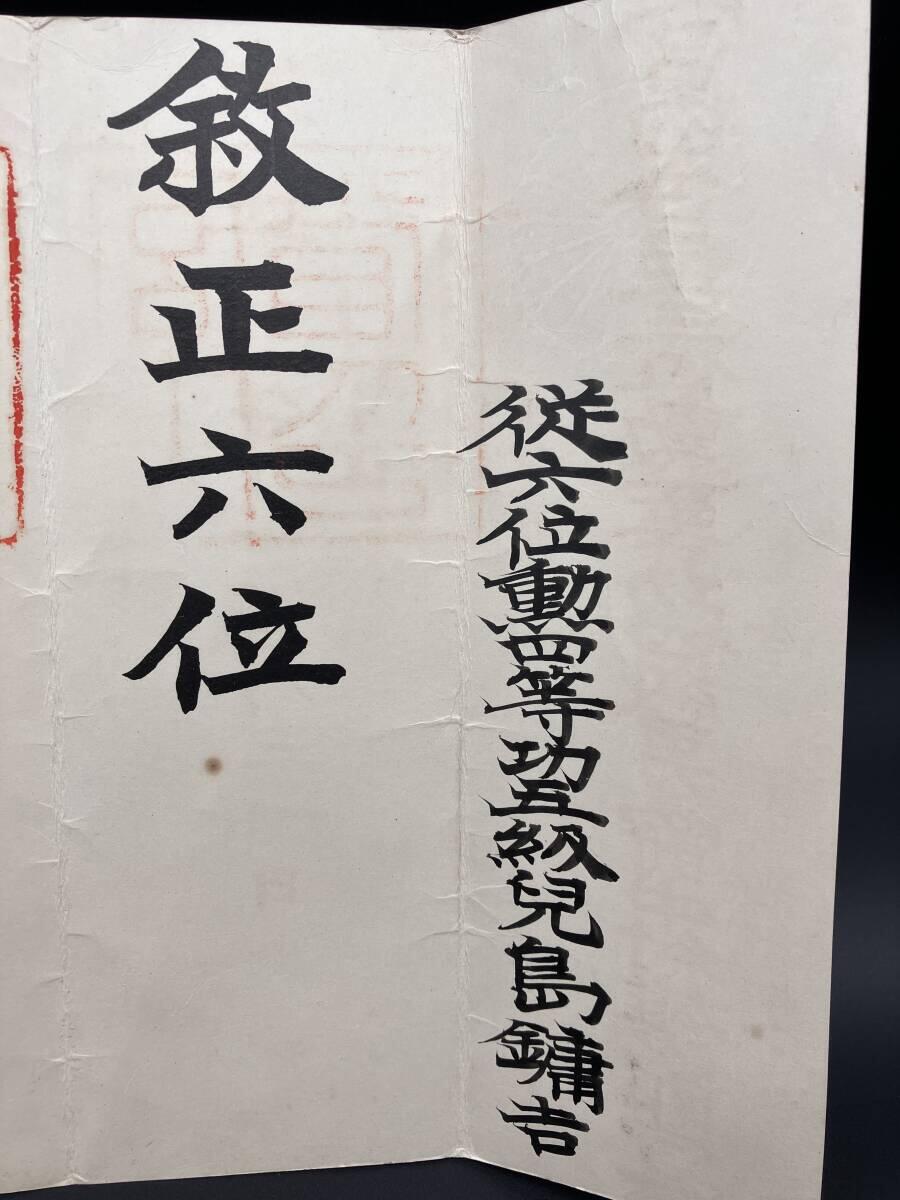 從六位勲四等功五級兒島鏞吉
敘正六位